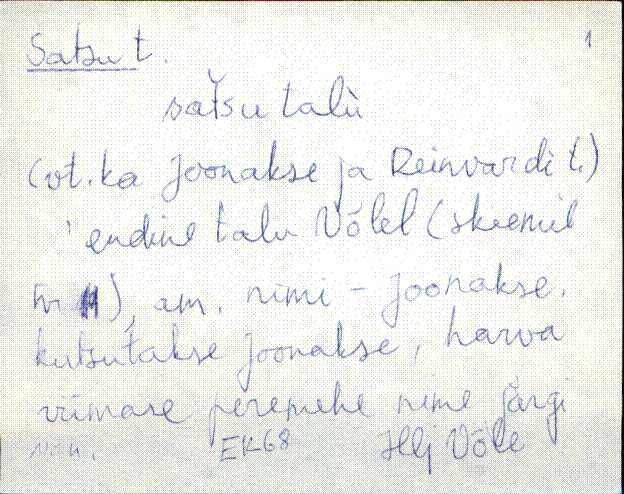 Satsu t. 1
satsu talu
(vt. ka Joonakse ja Reinvardi t.)
' endine talu Võlel (skeemil
nr 11), am. nimi - Joonakse.
kutsutakse Joonakse, harva
viimase peremehe nime järgi
EK68 Hlj Võle